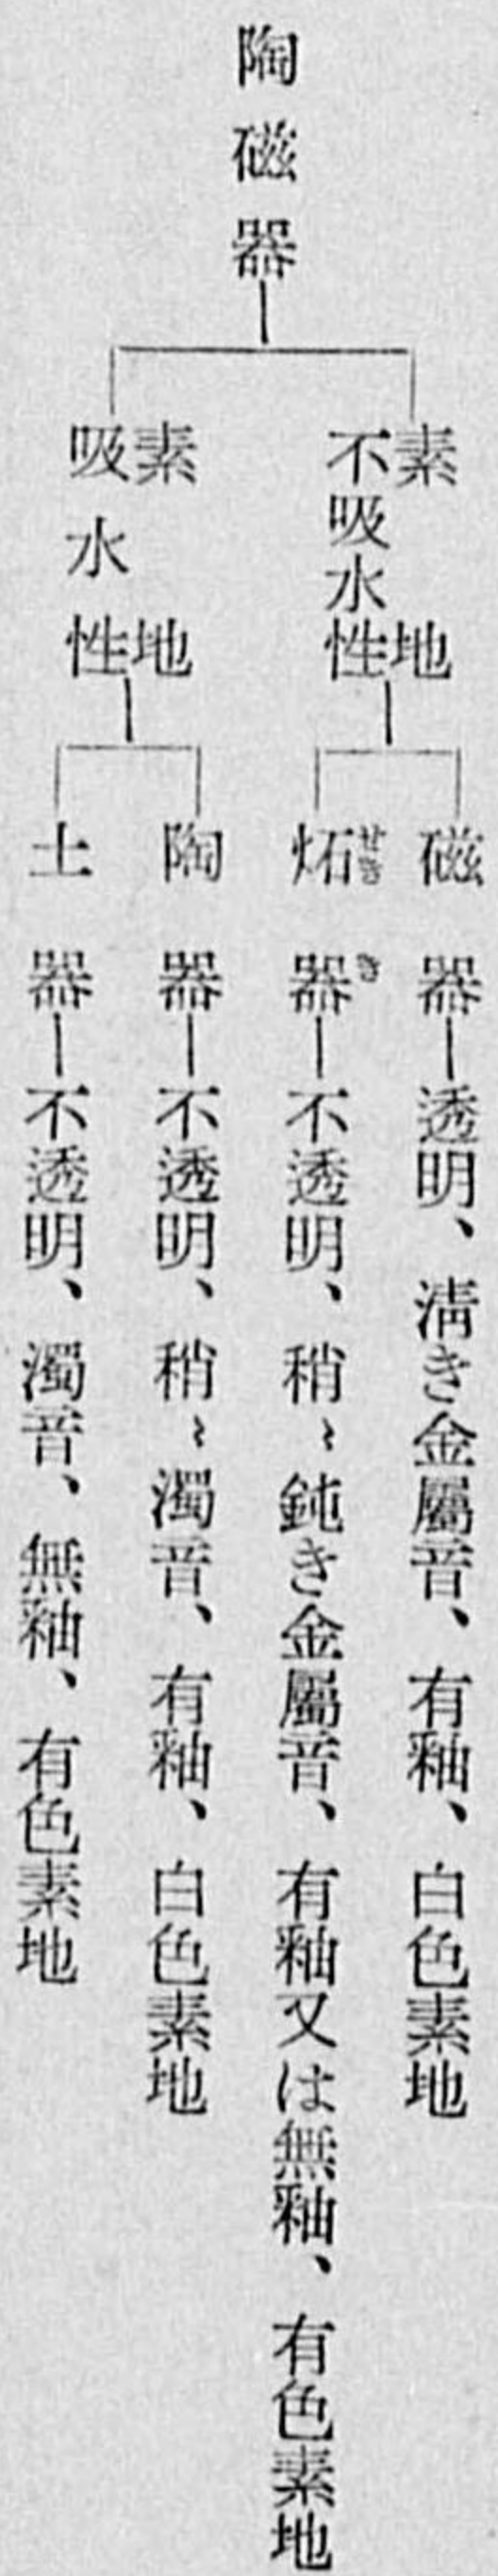 陶磁器
素地
不吸水性
磁器—透明、淸き金屬音、有釉、白色素地
炻器—不透明、稍〻鈍き金屬音、有釉又は無釉、有色素地
素地
吸水性
陶器—不透明、稍〻濁音、有釉、白色素地
土器—不透明、濁音、無釉、有色素地